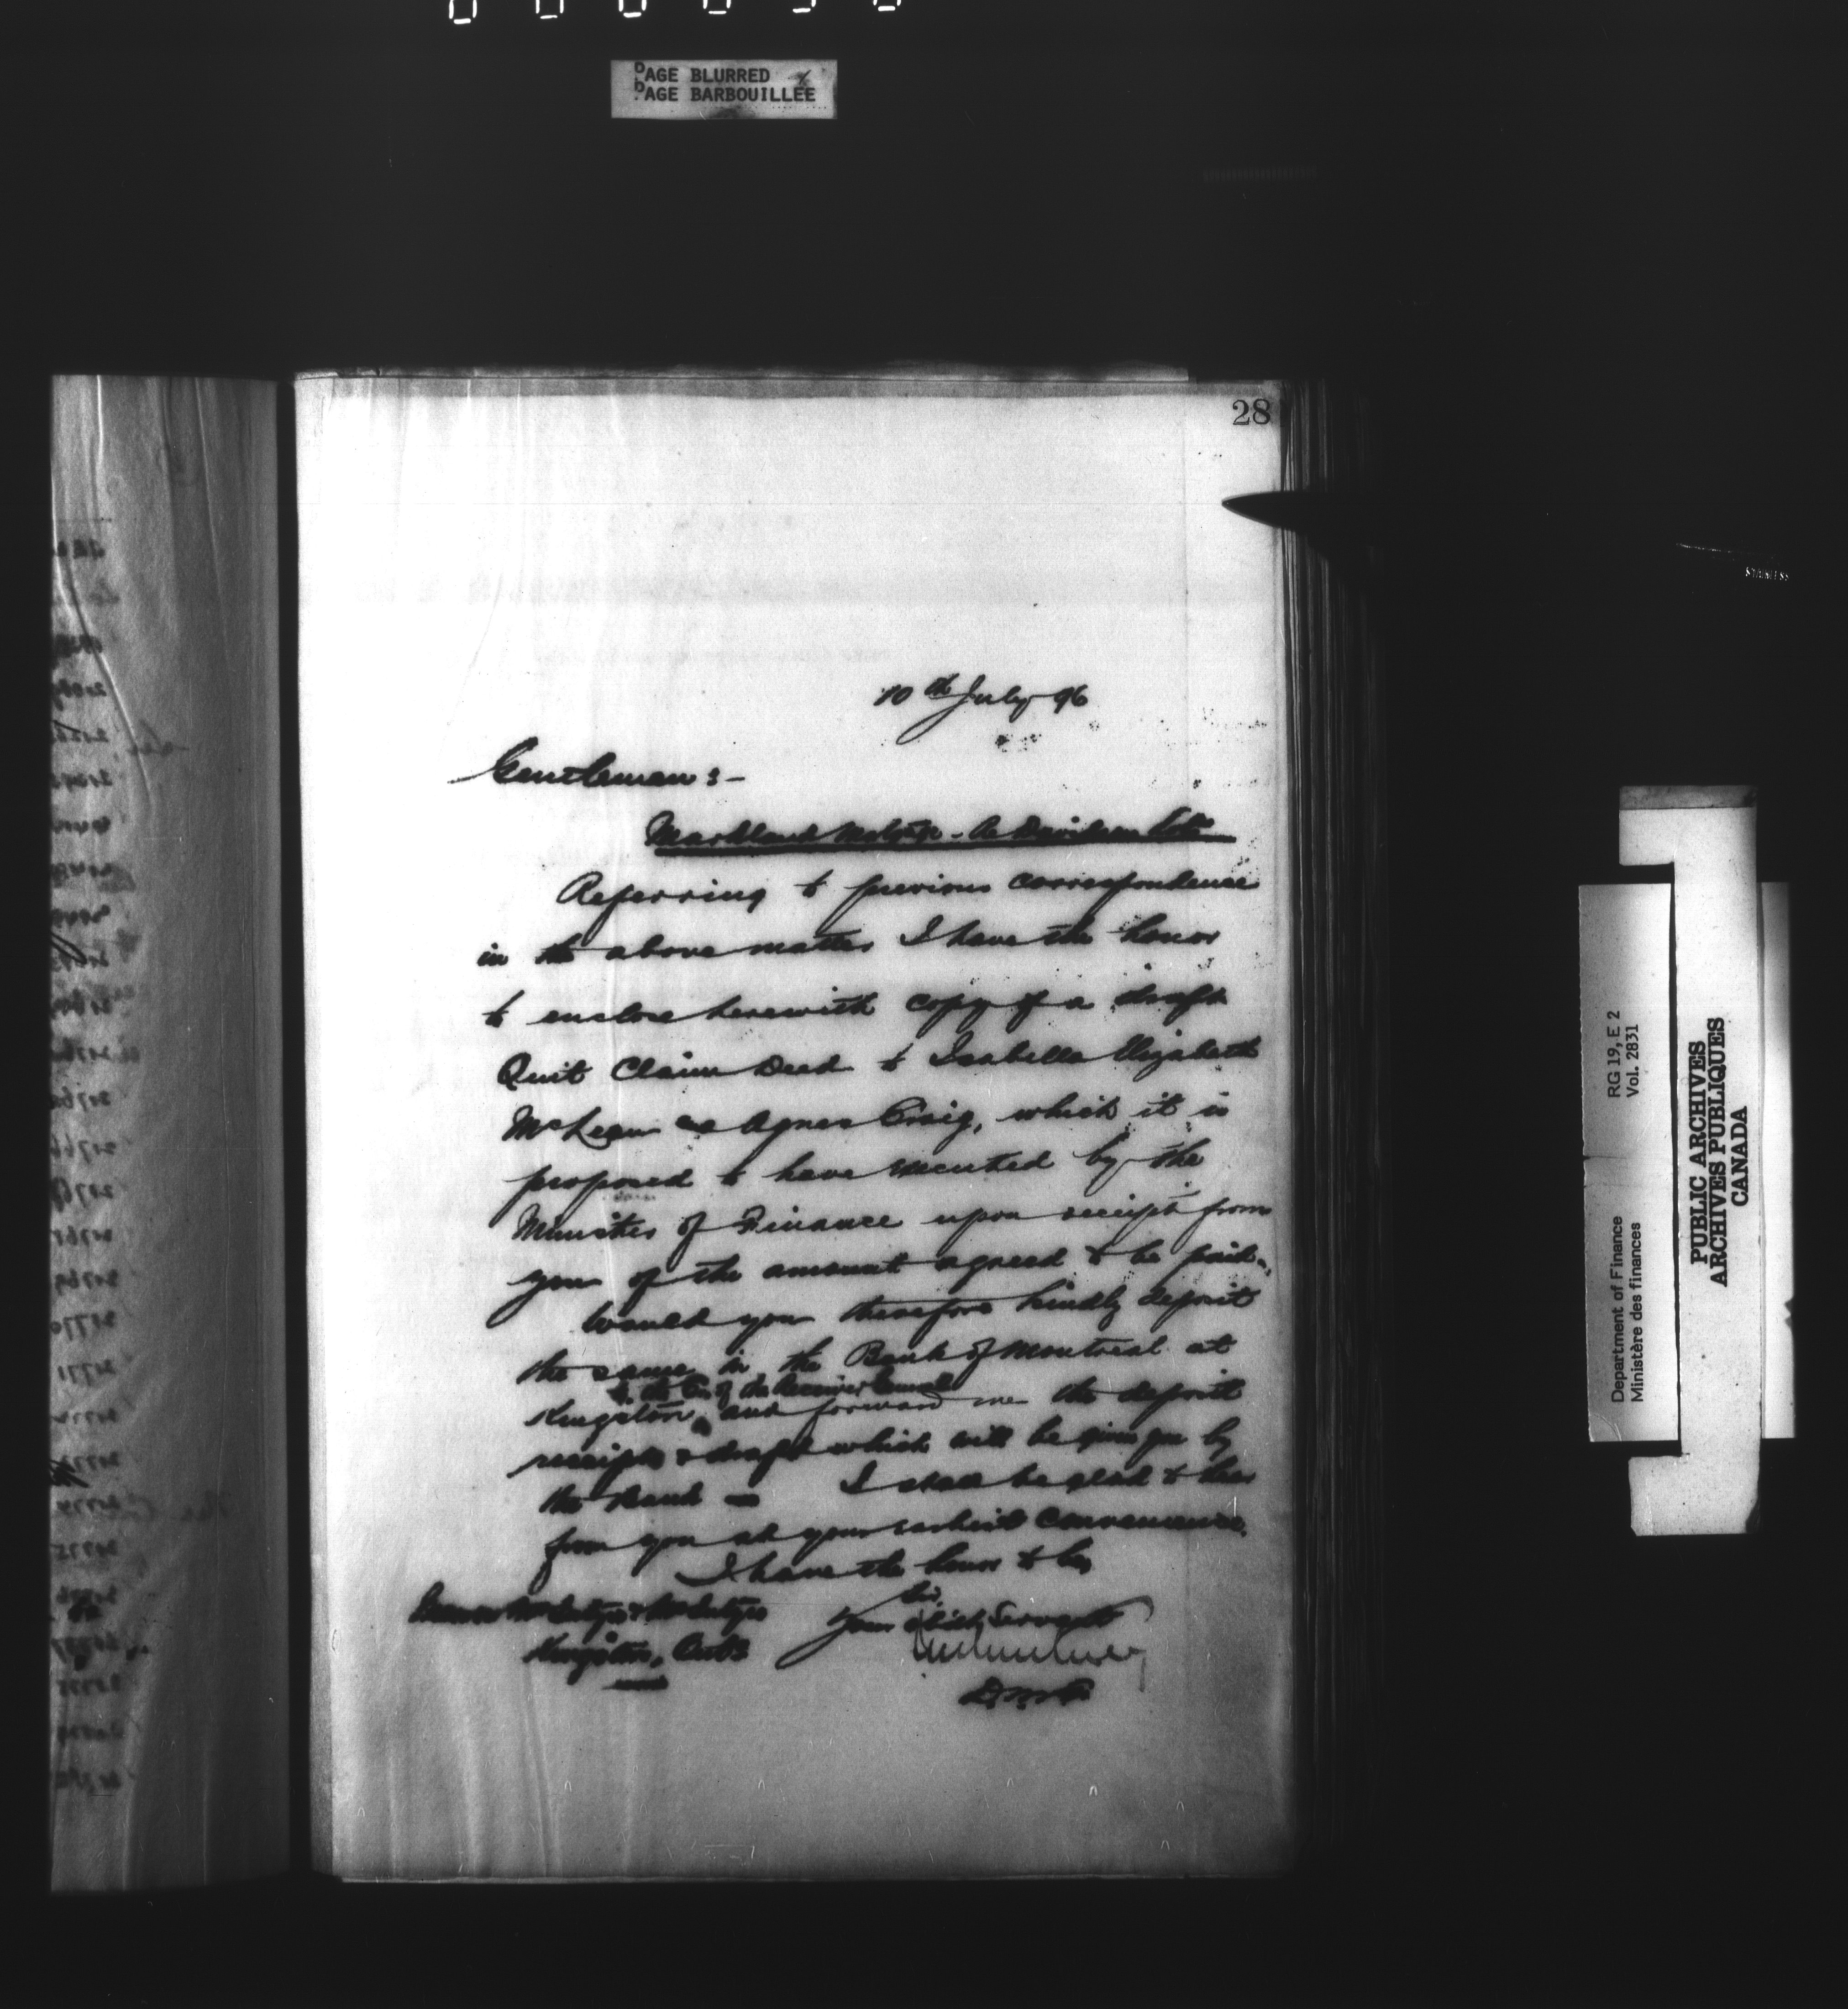 PAGE BLURRED
PAGE BARBOUILLÉE
28
10th July 96
Gentlemen :-
Markland Davidson Lots
Referring to previous correspondence
in the above matter I have the honor
to enclose herewith copy of a draft
Quit Claim Deed to Isabella Elizabeth
McLean Agnes Craig, which it is
proposed to have executed by the
Minister of Finance upon receipt from
you of the amount agreed to be paid.
Would you therefore kindly deposit
the same in the Bank of Montreal at
to the Cr. of the Receiver General
Kingston, and forward me the deposit
receipts & draft which will be given you by
the Bank I shall be glad to hear
from you at your earliest convenience.
I have the honor to be,
Sir,
Your Obedt Servant
McIntyre & McIntyre
Kingston, Ont.
Department of Finance RG 19, E 2
Ministère des finances Vol. 2831
PUBLIC ARCHIVES
ARCHIVES PUBLIQUES
CANADA
STAINLESS